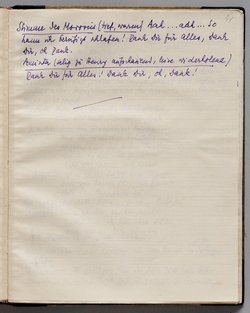 Stimme des Morosus (tief, warm) Aah... aah... So
kann ich beruhigt schlafen! Dank Dir für Alles, Dank
Dir, oh Dank.
Aminta (selig zu Henry aufschauend, leise wiederholend)
Dank Dir für Alles! Dank Dir, oh, Dank!